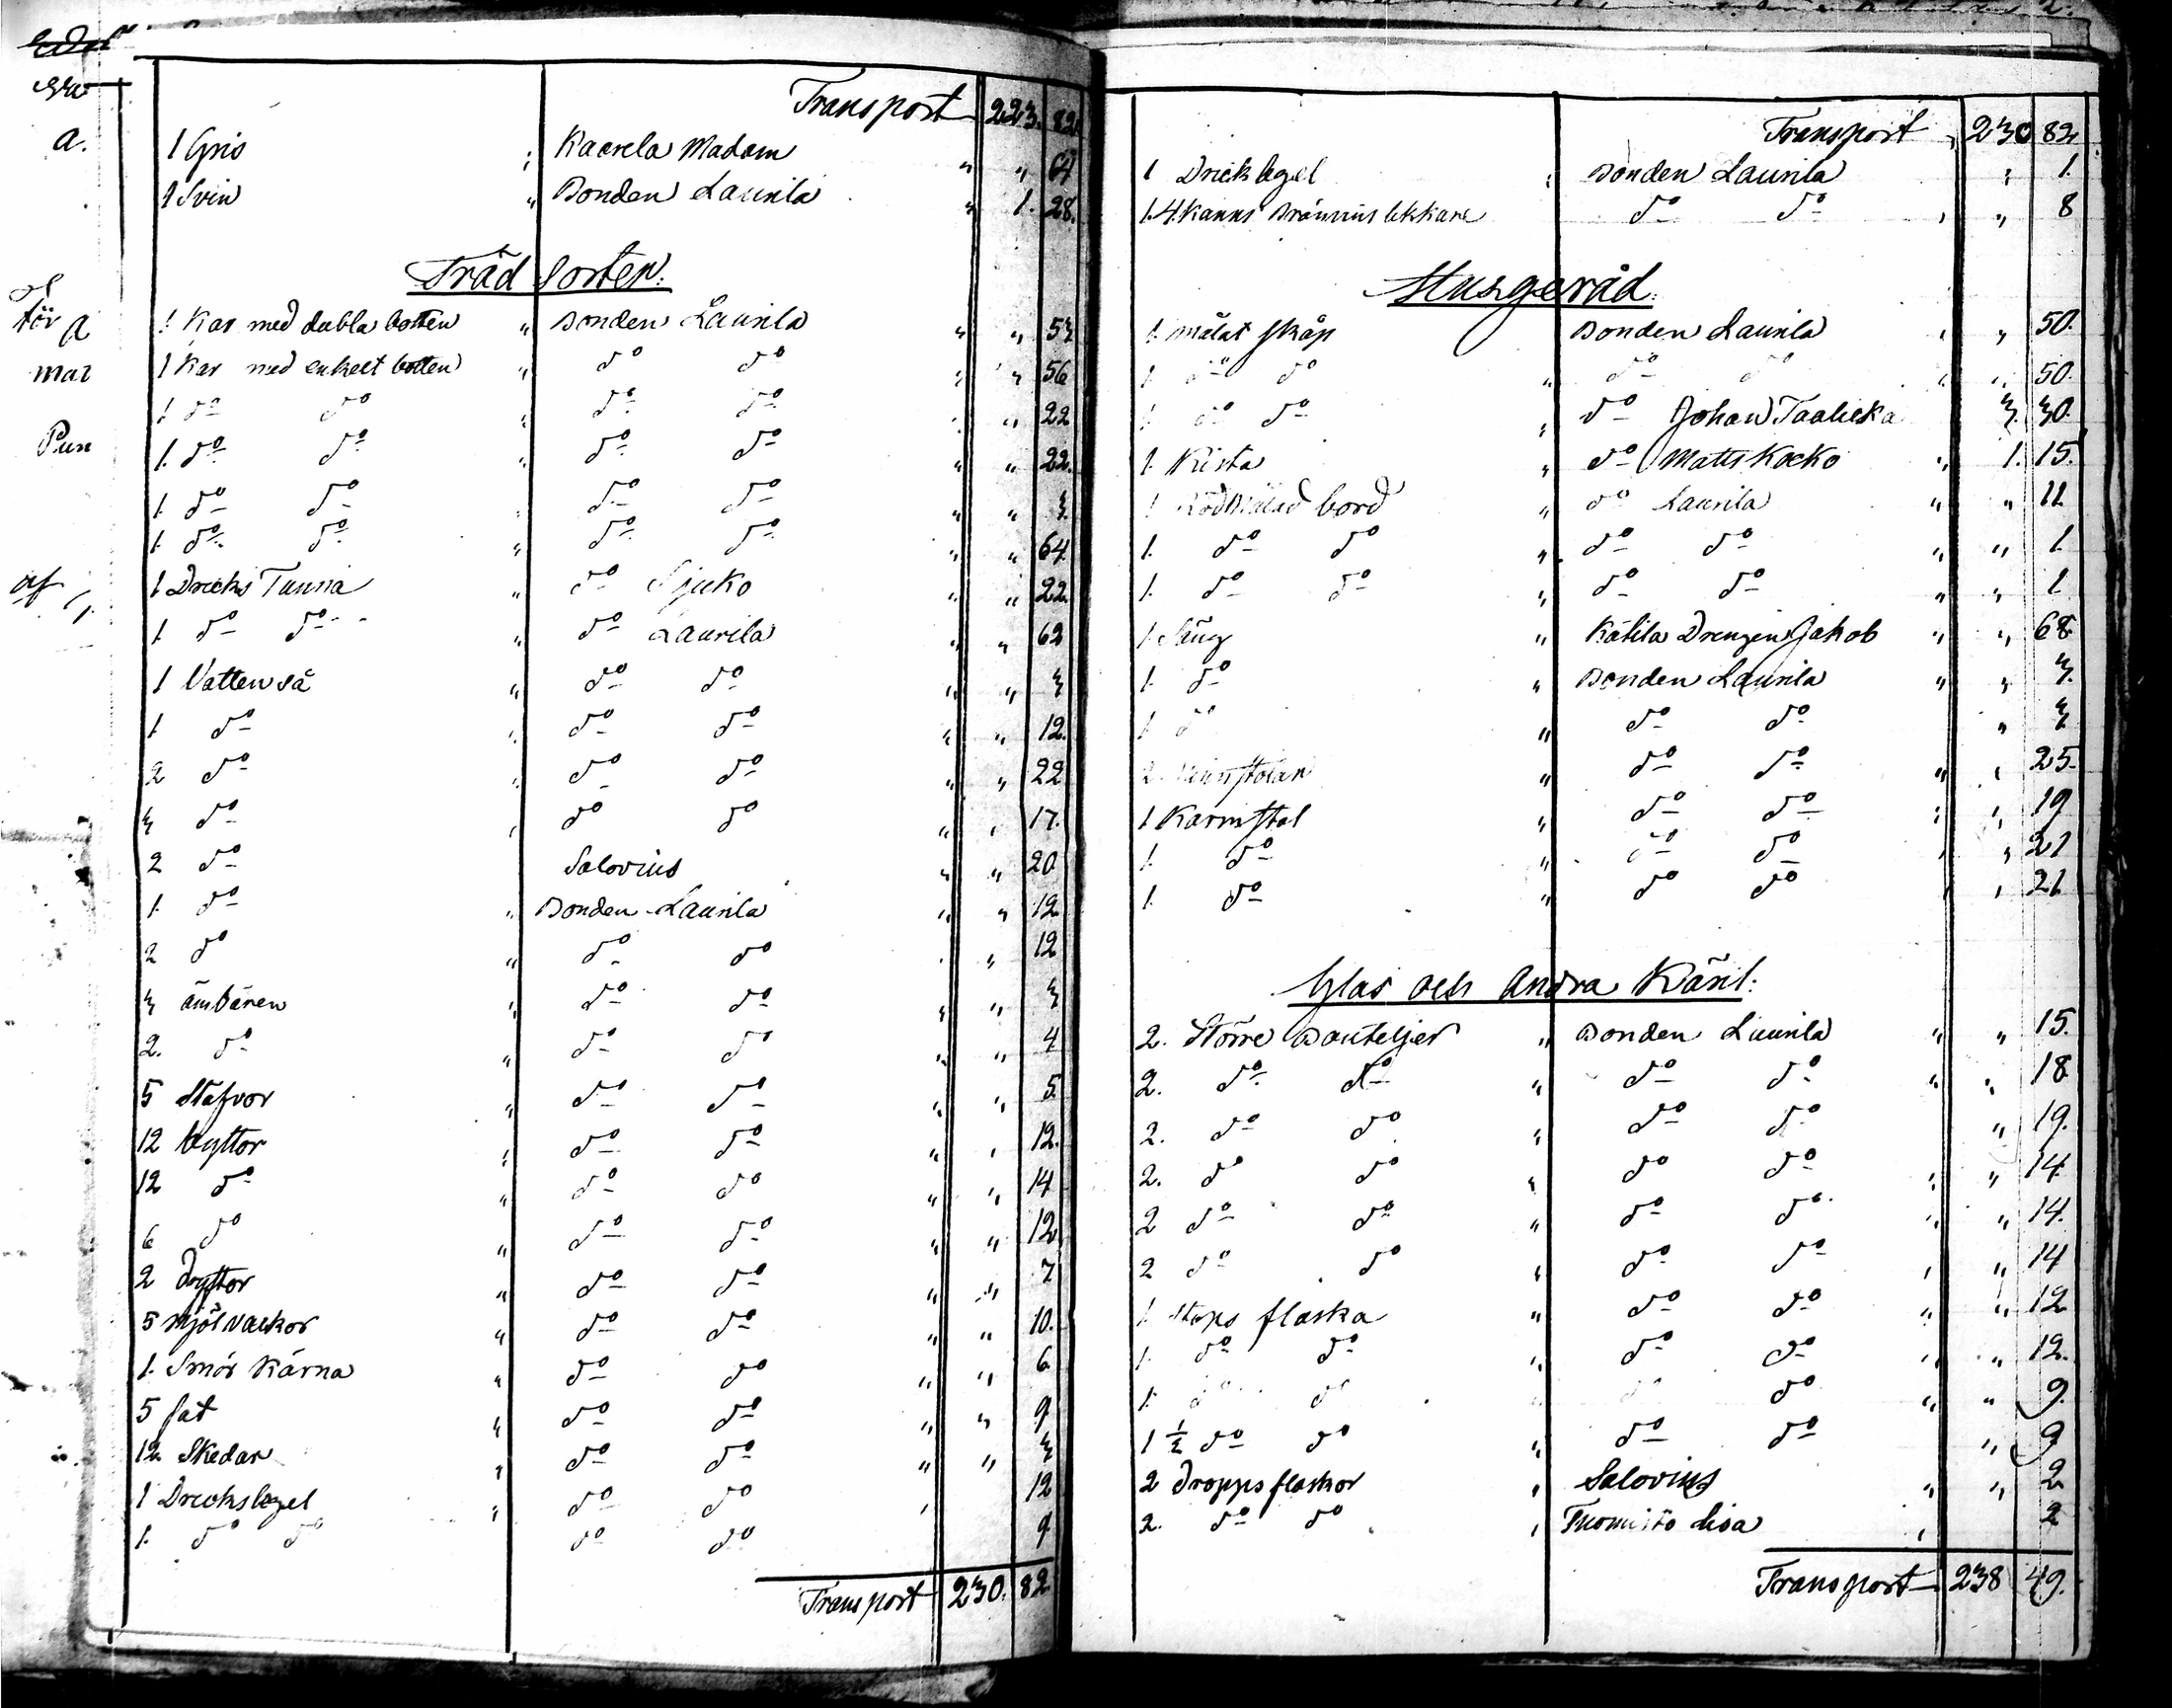 Transport 223. 82.
a.
1 Gris " Kaarela Madam " " 64
1 Svin " Bonden Laurila " 1. 28.
Träd Sorter:
1 Kar med dubla botten " Bonden Laurila " " 53
1 Kar med enkelt botten " do do " " 56
1 do do " do do " " 22
1. do do " do do " " 22.
1 do do " do do " " 3.
1. do do " do do " " 64.
af 1 Dricks Tunna " do Sjuko " " 22.
1 do do " do Laurila " " 62
1 Vatten så " do do " " 3
1 do " do do " " 12.
2 do " do do " " 22
3 do " do do " " 17.
2 do Salovius " " 20
1. do " Bonden Laurila " " 12
2 do " do do " " 12
3 ämbären " do do " " 3
2. do " do do " " 4
5 Stäfvor " do do " " 5
12 byttor " do do " " 12.
12 do " do do " " 14
6 do " do do " " 12
2 dyttor " do do " " 7
5 Mjöl vackor " do do " " 10.
1. Smör Kärna " do do " " 6
5 fat " do do " " 9
12 Skedar " do do " " 3
1 Drickslegel " do do " 12
1. do do do do 9
Transport 230. 82
Transport " 230 82
1 Drickslegel " Bonden Laurila " 1.
1. 4. Kanns Bränvins lekkare do do " " 8
Husgeråd.
1. målat skåp Bonden Laurila " " 50.
1. do do " do do " " 50.
1. do do " do Johan Taalicka 3. 30.
1. Kista " do Matts Kocko " 1. 15.
1 Rödmålad bord " do Laurila " " 11
1. do do " do do " " 1.
1. do do " do do " " 1
1. Säng " Kätila Drengen Jakob " " 68
1. do " Bonden Laurila " " 3.
1 do " do do " 3
2. stolar " do do " " 25.
1 Karmstol " do do " " 19
1. do " do do " " 21
1. do " do do " " 21
Glas och Andra Käril:
2. Större Bouteljer " Bonden Laurila " " 15.
2. do do " do do " " 18
2. do do " do do " 19.
2. do do " do do " " 14
2 do do " do do " " 14.
2 do do " do do " " 14
1. Stops flaska " do do " " 12
1. do do " do do " " 12.
1. do do do do " " 9.
1 ½ do do " do do " 9
2 droppsflaskor " Salovius " " 2
2. do do " Thomisto Lisa " 2
Transport 238 49.